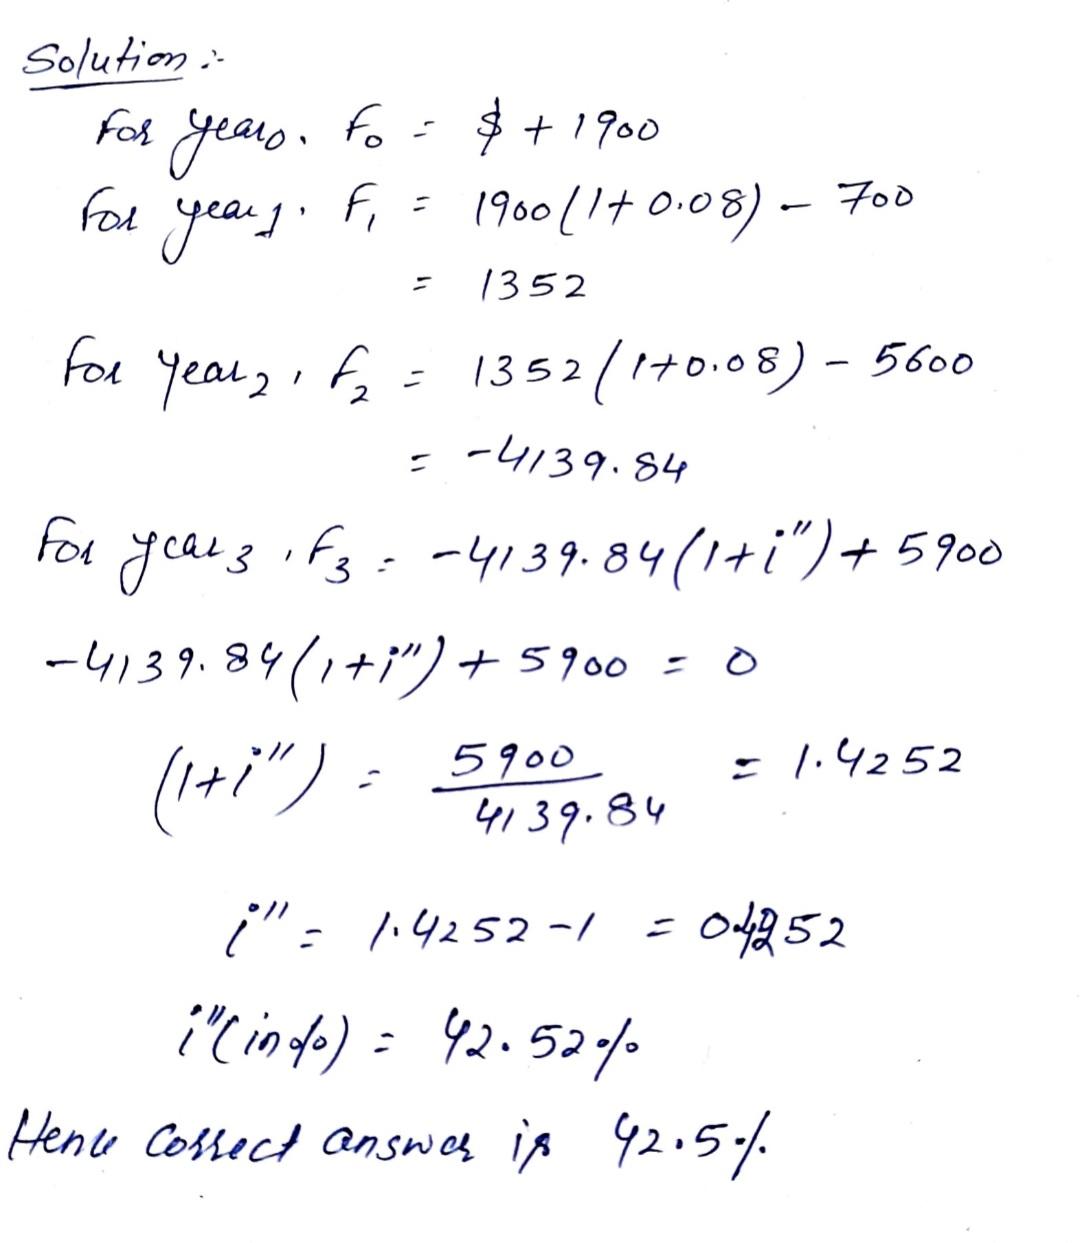 Solution :-
For year 0, F₀ = $ + 1900
For year 1, F₁ = 1900(1+0.08) - 700
= 1352
For year 2, F₂ = 1352(1+0.08) - 5600
= -4139.84
For year 3, F₃ = -4139.84(1+i'') + 5900
-4139.84(1+i'') + 5900 = 0
(1+i'') = 5900/4139.84 = 1.4252
i'' = 1.4252-1 = 0.4252
i''(in %) = 42.52%
Hence Correct answer is 42.5%